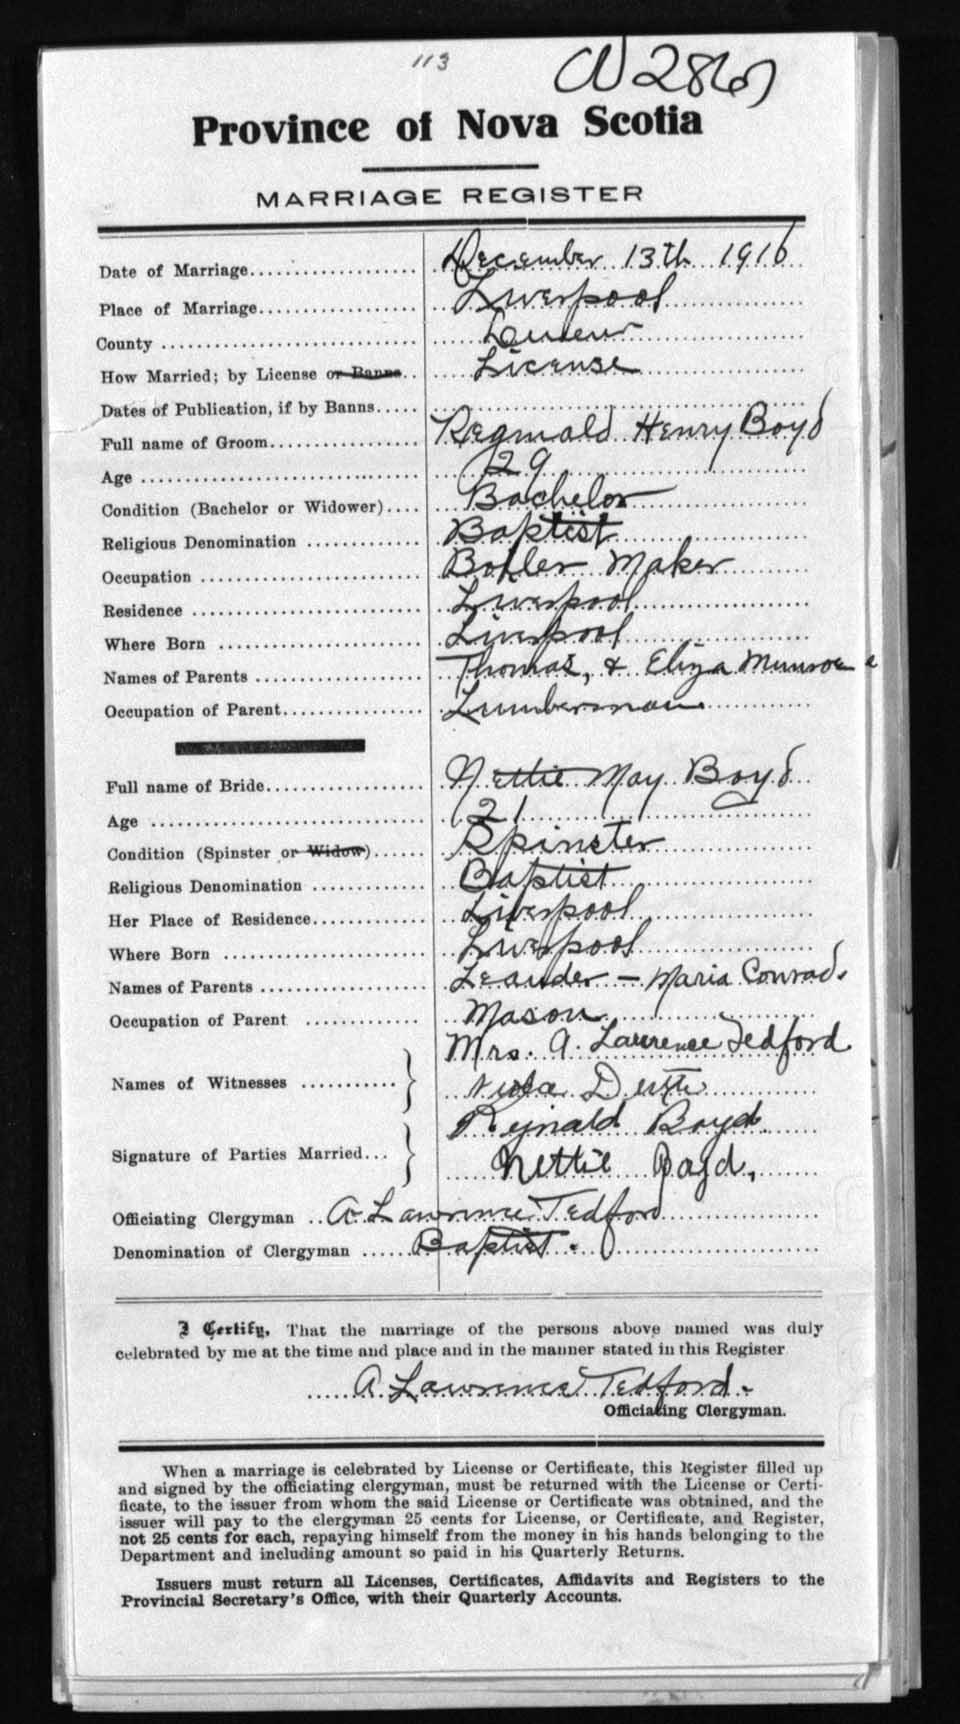 113
Province of Nova Scotia
MARRIAGE REGISTER
Date of Marriage.................... December 13th 1916
Place of Marriage.................... Liverpool
County .................... Queens
How Married; by License or Banns.. License
Dates of Publication, if by Banns.....
Full name of Groom.................... Reginald Henry Boyd
Age .................... 29
Condition (Bachelor or Widower).... Bachelor
Religious Denomination ............ Baptist
Occupation .................... Boiler Maker
Residence .................... Liverpool
Where Born .................... Liverpool
Names of Parents .................... Thomas, & Eliza Munroe
Occupation of Parent................ Lumberman
Full name of Bride.................... Nettie May Boyd
Age .................... 21
Condition (Spinster or Widow)...... Spinster
Religious Denomination ............ Baptist
Her Place of Residence............. Liverpool
Where Born .................... Liverpool
Names of Parents .................... Leander – Maria Conrad.
Occupation of Parent ............ Mason
Mrs. A. Lawrence Tedford
Names of Witnesses ...........
Reginald Boyd.
Signature of Parties Married...
Nettie Boyd,
Officiating Clergyman .. A. Lawrence Tedford
Denomination of Clergyman ...... Baptist.
I Certify, That the marriage of the persons above named was duly
celebrated by me at the time and place and in the manner stated in this Register
A. Lawrence Tedford.
Officiating Clergyman.
When a marriage is celebrated by License or Certificate, this Register filled up
and signed by the officiating clergyman, must be returned with the License or Certi-
ficate, to the issuer from whom the said License or Certificate was obtained, and the
issuer will pay to the clergyman 25 cents for License, or Certificate, and Register,
not 25 cents for each, repaying himself from the money in his hands belonging to the
Department and including amount so paid in his Quarterly Returns.
Issuers must return all Licenses, Certificates, Affidavits and Registers to the
Provincial Secretary's Office, with their Quarterly Accounts.